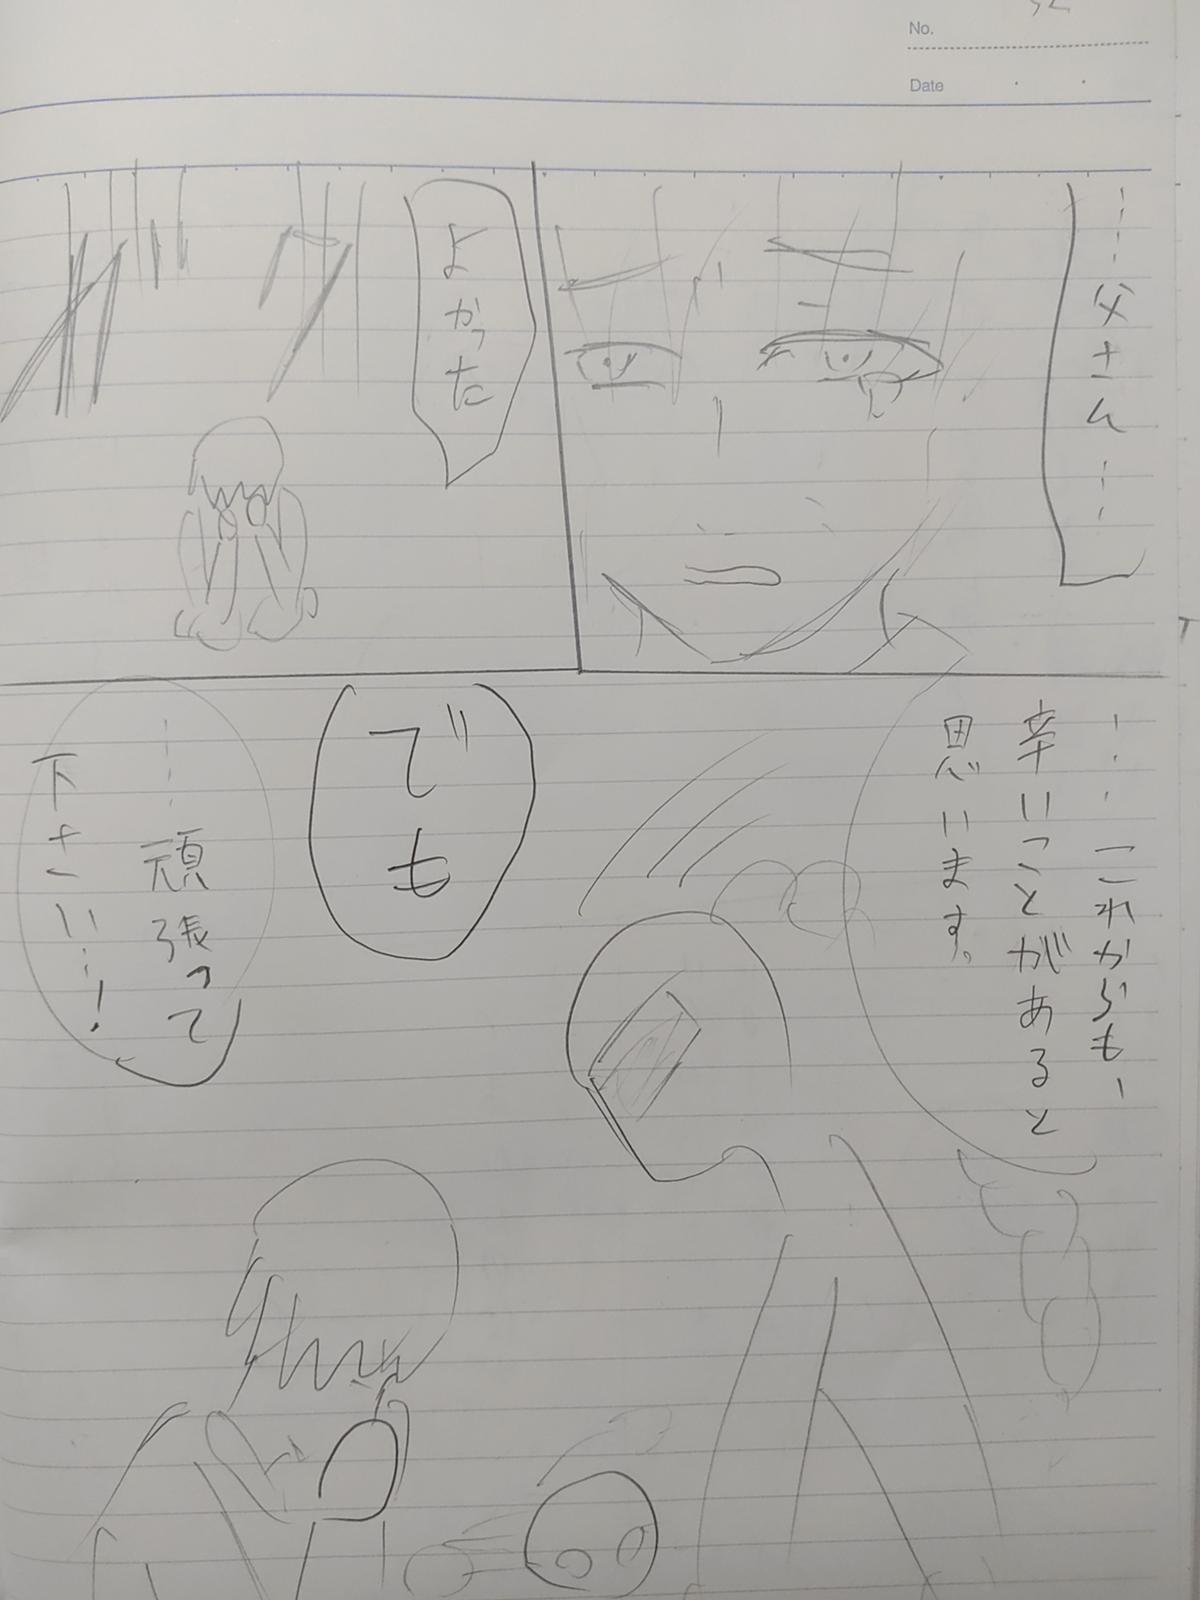 No.
Date
……父さん……
よかった
……これからも、
辛いことがあると
思います。
でも
……頑張って
下さい…！